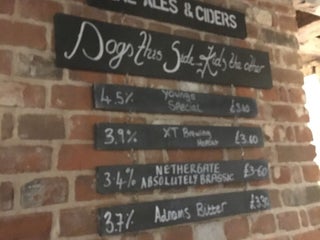 ALES & CIDERS
Dogs this Side - Kids the other
4.5% Youngs Special
3.9% XT Brewing £3.60
3.4% NETHERGATE ABSOLUTELY BRASSIC £3.60
3.7% Adnams Bitter